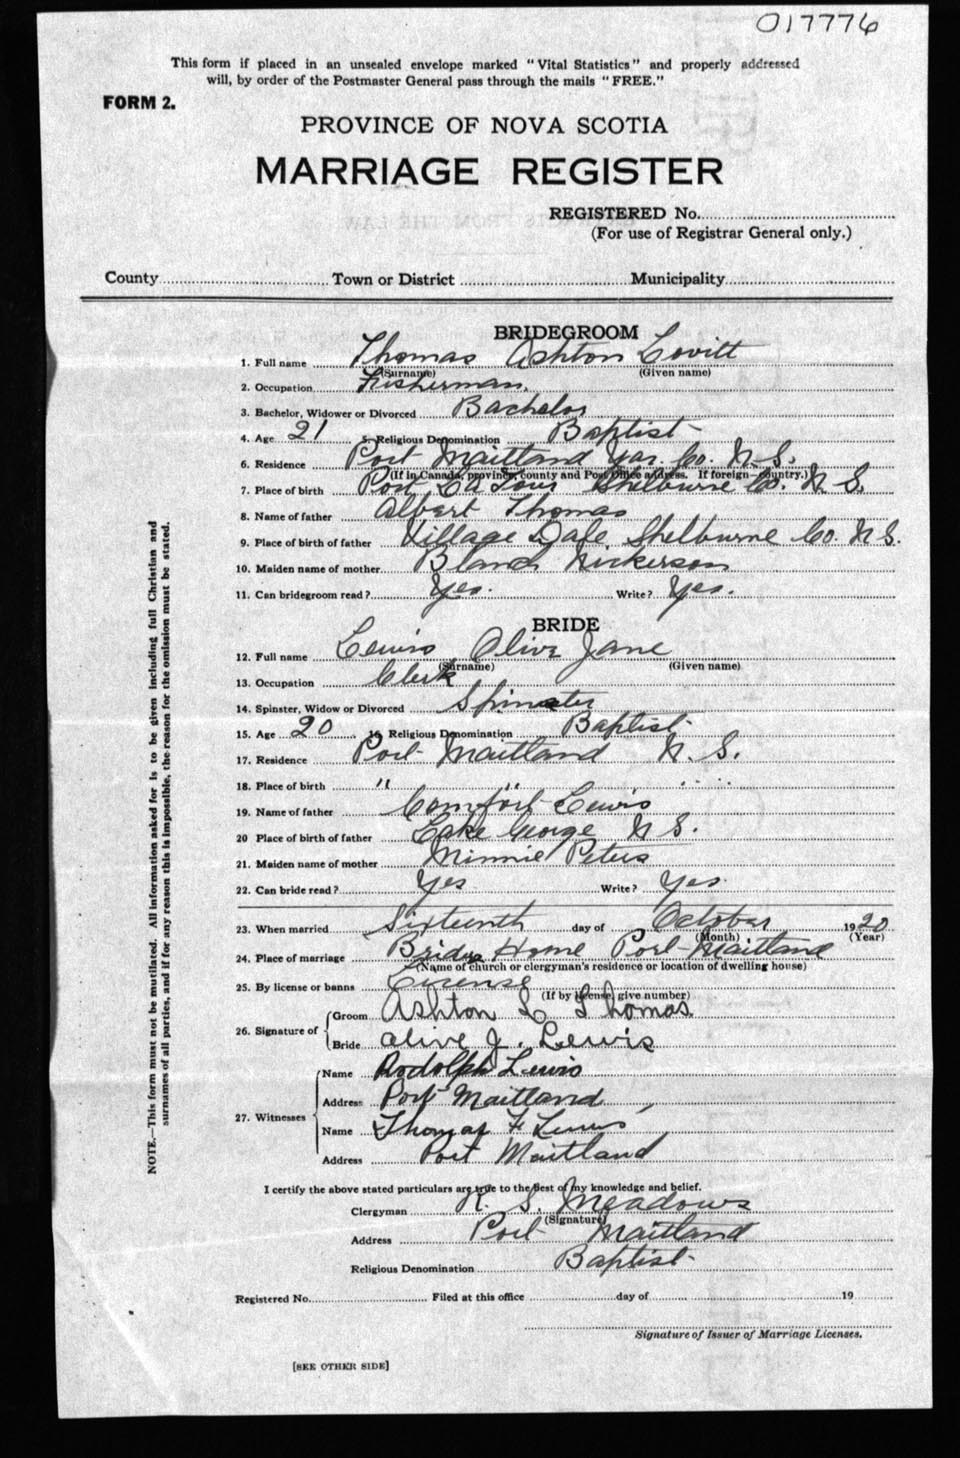 017776
This form if placed in an unsealed envelope marked "Vital Statistics" and properly addressed
will, by order of the Postmaster General pass through the mails "FREE."
FORM 2.
PROVINCE OF NOVA SCOTIA
MARRIAGE REGISTER
REGISTERED No.
(For use of Registrar General only.)
County Town or District Municipality
BRIDEGROOM
1. Full name Thomas Ashton Lovitt
(Surname) (Given name)
2. Occupation Fisherman.
3. Bachelor, Widower or Divorced Bachelor
4. Age 21 5. Religious Denomination Baptist
6. Residence Port Maitland Yar. Co. N. S.
(If in Canada, province, county and Post Office address. If foreign—country.)
7. Place of birth Port La Tour Shelburne Co. N. S.
8. Name of father Albert Thomas
9. Place of birth of father Village Dale Shelburne Co. N. S.
10. Maiden name of mother Blanch Nickerson
11. Can bridegroom read? Yes. Write? Yes.
BRIDE
12. Full name Lewis Olive Jane
(Surname) (Given name)
13. Occupation Clerk
14. Spinster, Widow or Divorced Spinster
15. Age 20 16. Religious Denomination Baptist
17. Residence Port Maitland N. S.
18. Place of birth " " " "
19. Name of father Comfort Lewis
20 Place of birth of father Lake George N. S.
21. Maiden name of mother Minnie Peters
22. Can bride read? Yes Write? Yes.
23. When married Sixteenth day of October 1920
(Month) (Year)
24. Place of marriage Brides Home Port Maitland
(Name of church or clergyman's residence or location of dwelling house)
25. By license or banns License
(If by license, give number)
26. Signature of Groom Ashton L Thomas.
Bride Olive J. Lewis
27. Witnesses Name Rodolph Lewis
Address Port Maitland,
Name Thomas F Lewis
Address Port Maitland
I certify the above stated particulars are true to the best of my knowledge and belief.
Clergyman R. S. Meadows
(Signature)
Address Port Maitland
Religious Denomination Baptist
Registered No. Filed at this office day of 19
Signature of Issuer of Marriage Licenses.
[SEE OTHER SIDE]
NOTE.—This form must not be mutilated. All information asked for is to be given including full Christian and
surnames of all parties, and if for any reason this is impossible, the reason for the omission must be stated.